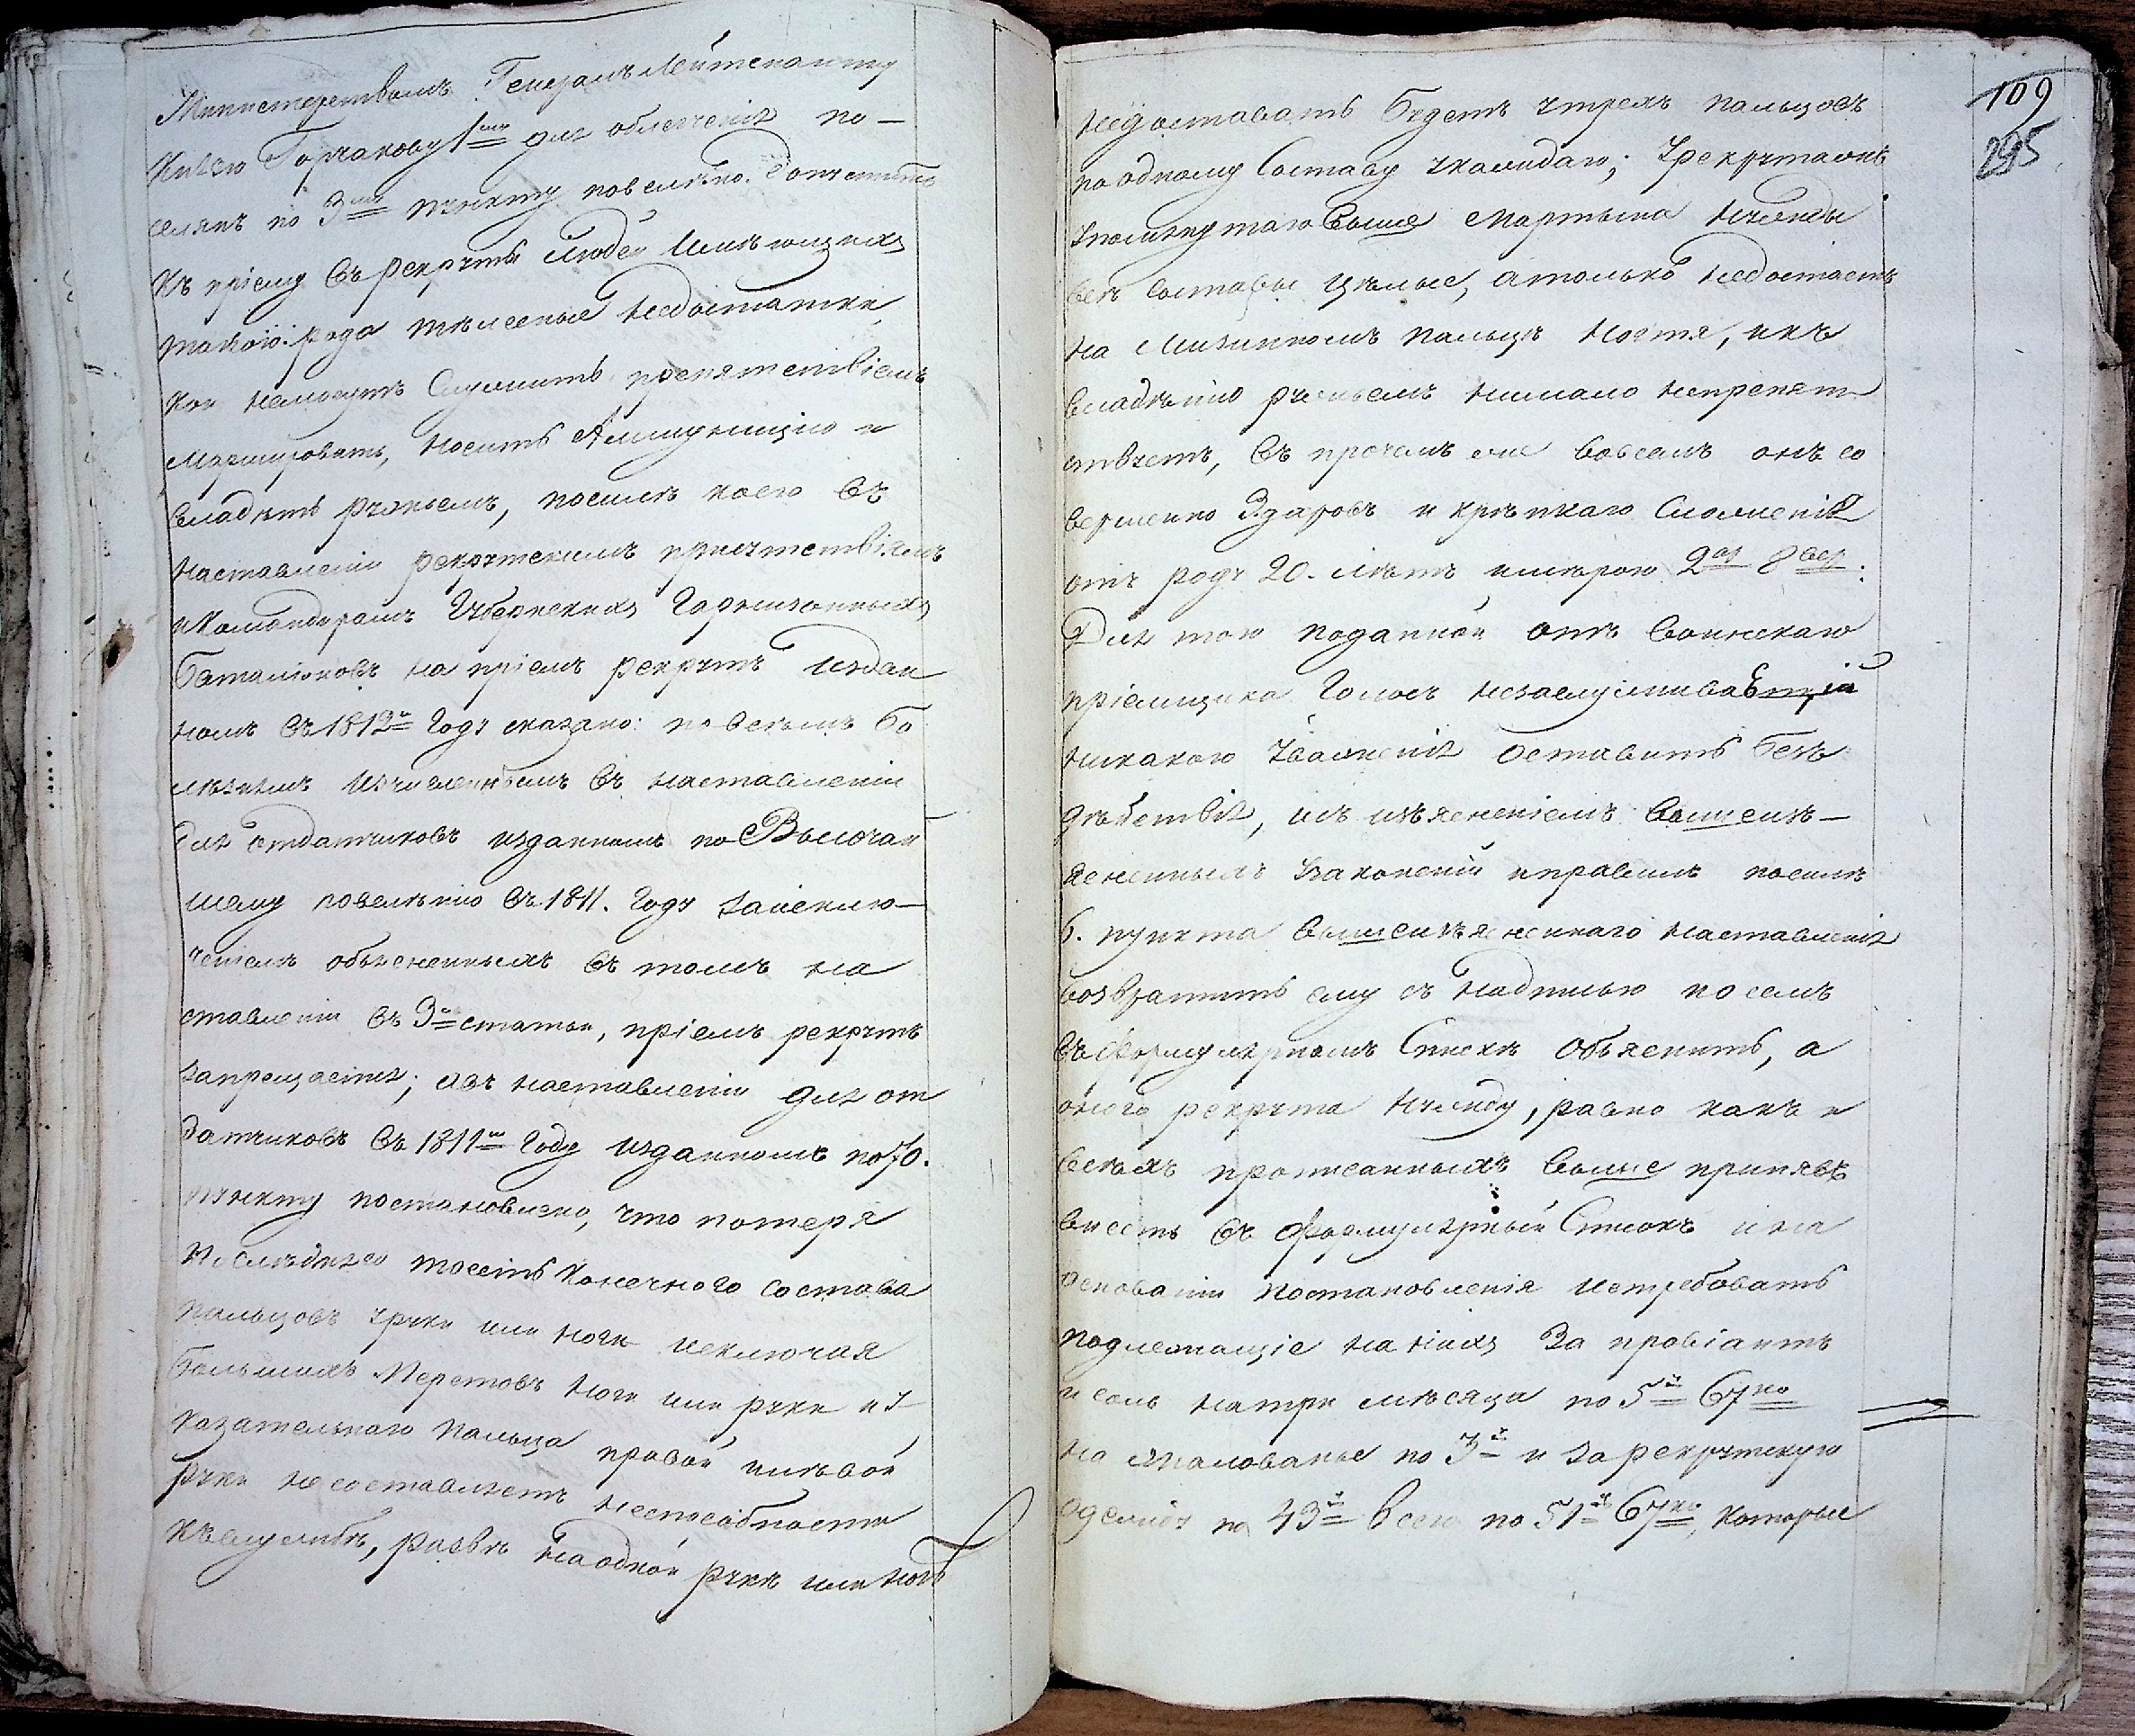 Министерствомъ Генералъ Лейтенанту
Князю Горчакову 1<sup>му</sup> для облегченія по-
селянъ по 3<sup>му</sup> пункту повелѣно: Допустить
къ пріему въ рекруты людей имѣющихъ
такого рода тѣлесные недостатки,
кои немогутъ служить препятствіемъ
маршировать, носить Аммуницію и
владѣть ружьемъ, посилѣ коего въ
наставленіи рекрутскимъ присутствіямъ
и Командирамъ Губернскихъ Гарнизонныхъ
баталіоновъ на пріемъ рекрутъ издан
номъ въ 1812<sup>м</sup> году сказано: по всѣмъ бо
лѣзнямъ изчисленнымъ въ наставленіи
для отдатчиковъ изданномъ по Высочай
шему повелѣнію въ 1811. году заисклю-
ченіемъ объясненныхъ въ томъ на
ставленіи въ 3<sup>й</sup> статьи, пріемъ рекрутъ
запрещается; авъ наставленіи для от
датчиковъ въ 1811<sup>м</sup> году изданномъ по 70.
пункту постановлено, что потеря
послѣдняго тоесть конечного состава
пальцовъ уруки или ноги исключая
большихъ перстовъ ноги или руки и у
казательнаго пальца правой илѣвой
руки не составляетъ неспособности
къ службѣ, развѣ на одной рукѣ или ногѣ
109
295
недоставать будетъ утрехъ пальцовъ
по одному Составу укаждаго; Урекрутажъ
упомянутаго выше Мартына
всѣ составы цѣлые, атолько недостаетъ
на мизинномъ пальцѣ ногтя, икъ
владѣнію ружьемъ нимало непрепят
ствуетъ, въ прочемъ же вовсемъ онъ со
вершенно Здаровъ и крѣпкаго Сложенія
отъ роду 20. лѣтъ имѣрою 2<sup>ар</sup> 8<sup>вер</sup>:
Для того поданной отъ воинскаго
пріемщика голосъ
никакого уваженія оставить безъ
дѣйствія, исъ изъясненіемъ вышеизъ-
ясненныхъ узаконеній иправилъ посилѣ
6. пункта вышеизъясненнаго наставленія
возвратить ему съ надписью по семъ
въ Формулярномъ Спискѣ объяснить, а
оного рекрута равно какъ и
всѣхъ прописанныхъ выше принявъ
внесть въ Формулярный Списокъ и на
основаніи постановленія истребовать
подлежащіе на нихъ За провіантъ
и соль натри мѣсяца по 5<sup>й</sup> 67<sup>ко</sup>
на жалованье по 3<sup>й</sup> и зарекрутскую
одежду по 43<sup>й</sup> всего по 51<sup>й</sup> 67<sup>ко</sup>, которые